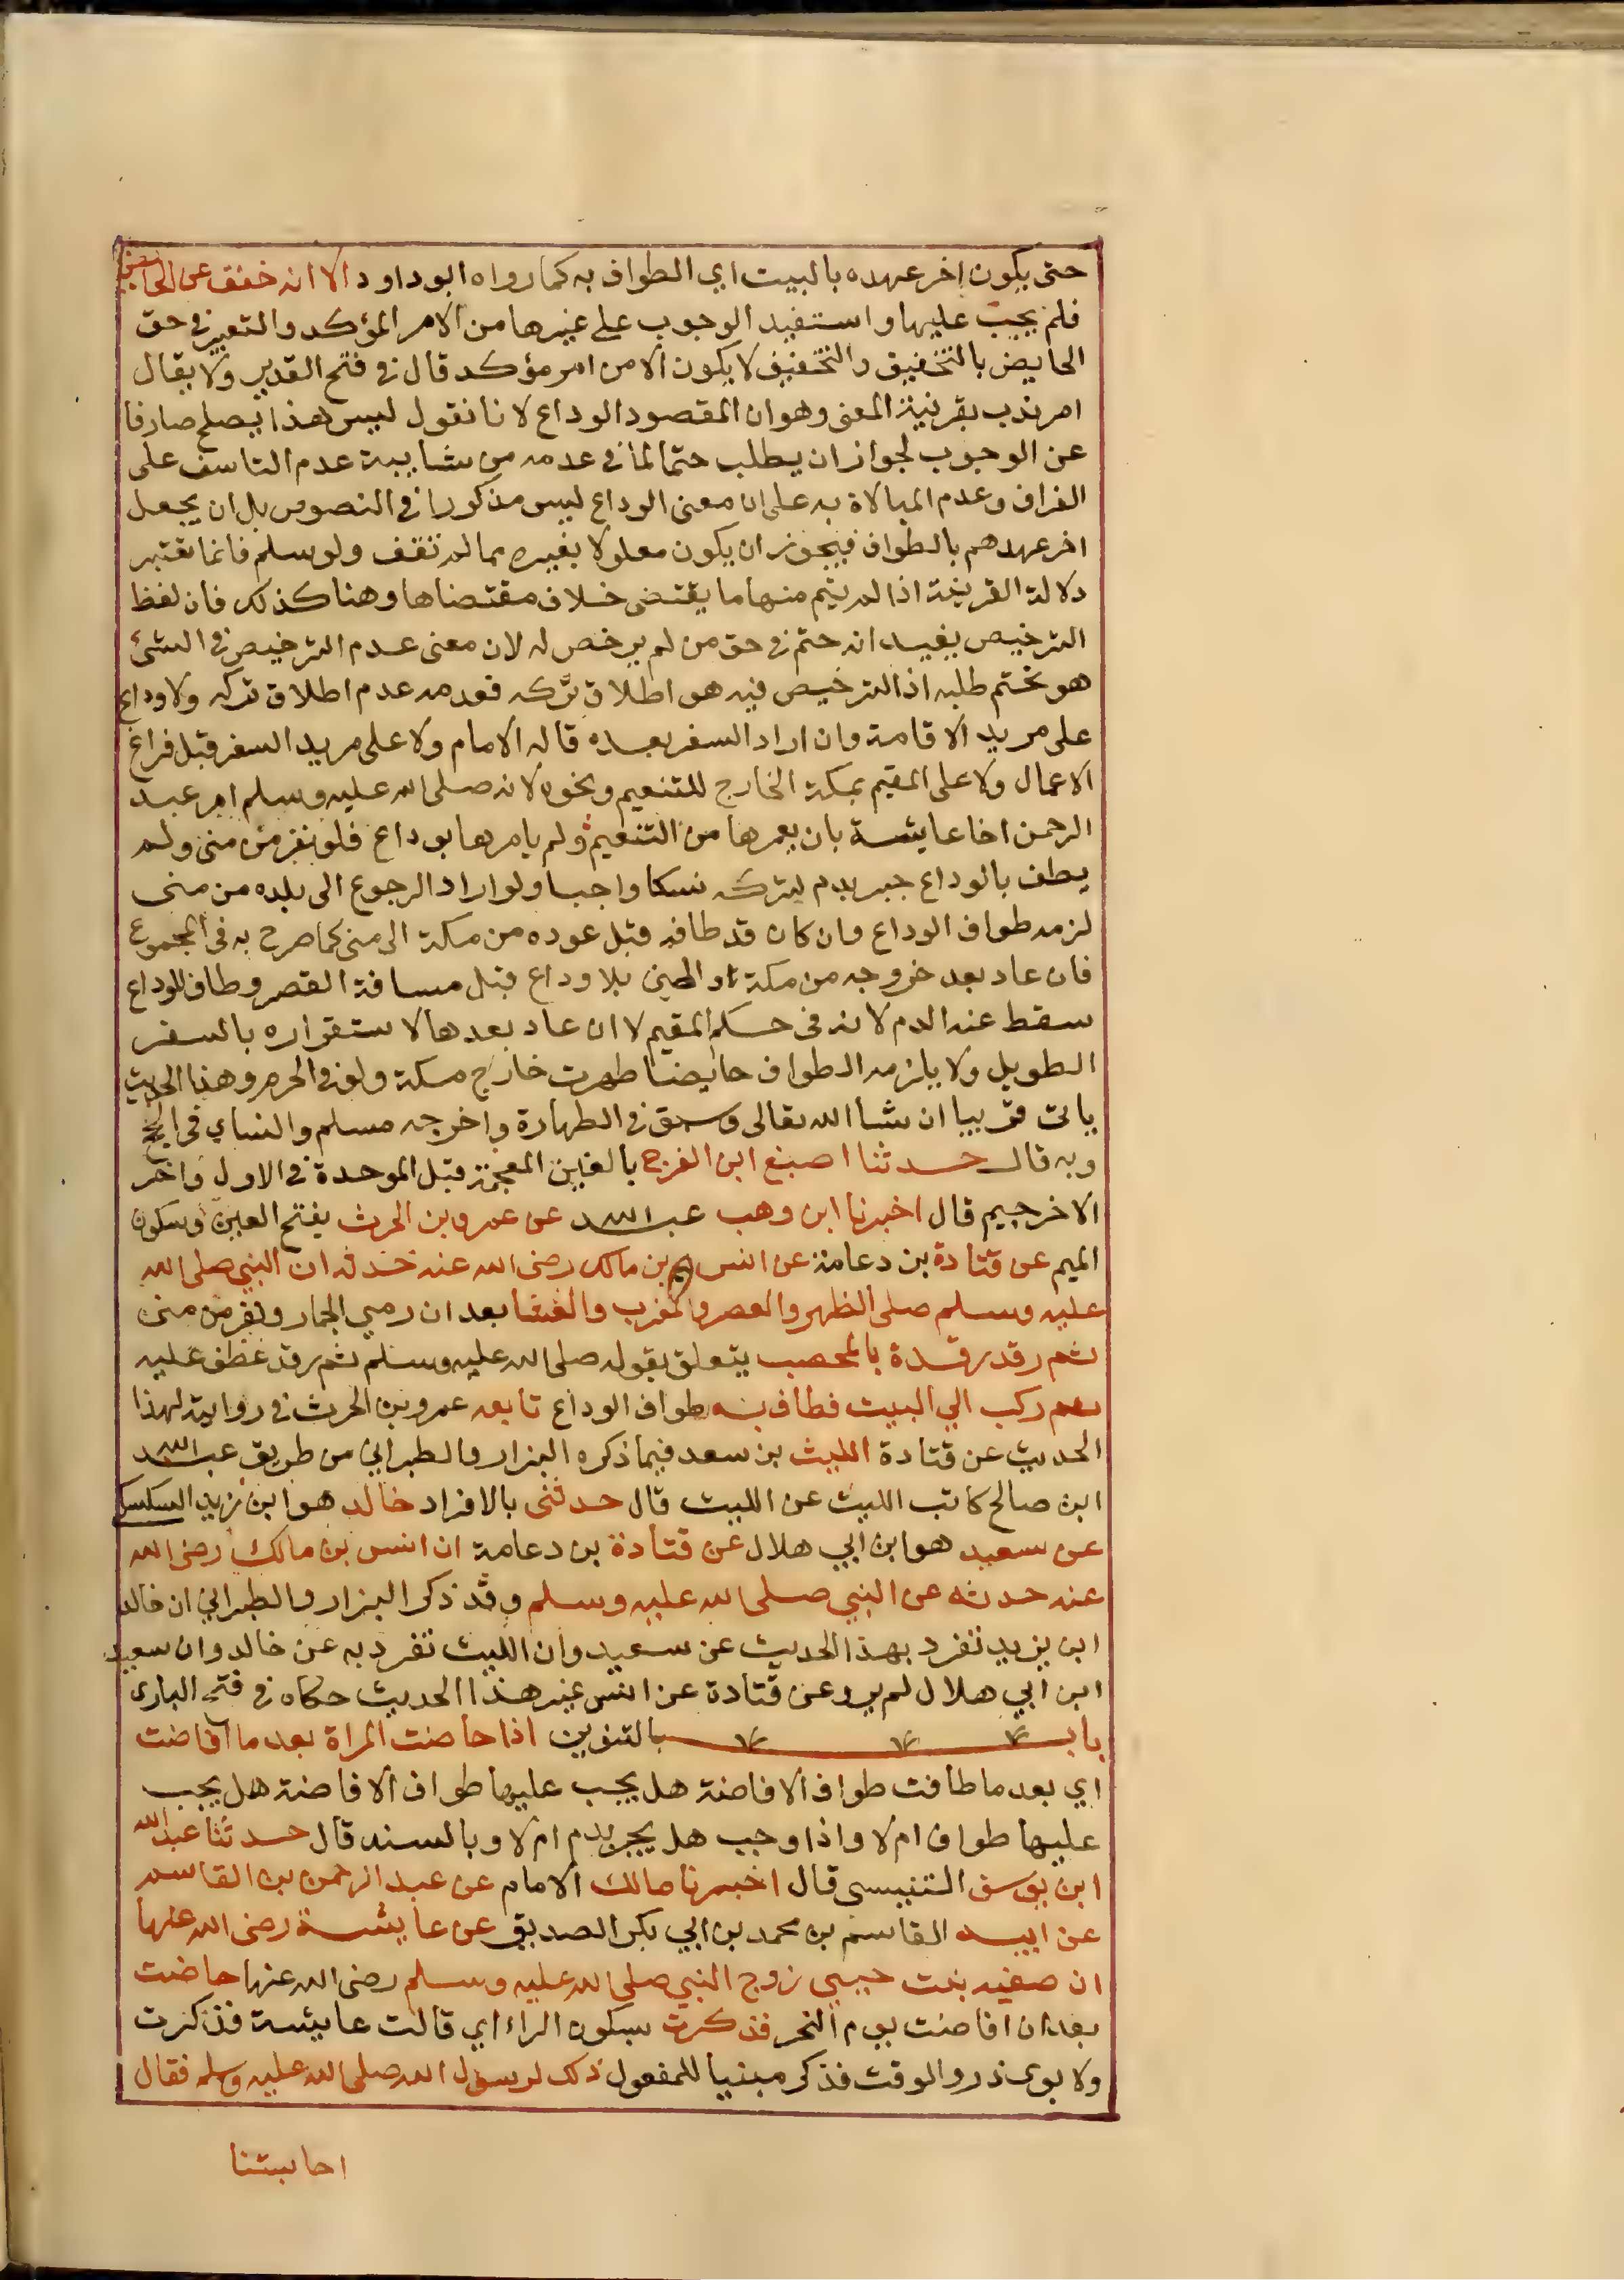 حتى يكون اخر عهده بالبيت اي الطواف به كما رواه ابو داود الا انه خفف عن الحائض
فلم يجب عليها واستفيد الوجوب على غيرها من الامر المؤكد والتعبير في حق
الحايض بالتخفيف والتخفيف لا يكون الا من امر مؤكد قال في فتح القدير ولا يقال
امر ندب بقرينة المعنى وهو ان المقصود الوداع لانا نقول ليس هذا يصلح صارفا
عن الوجوب لجواز ان يطلب حتما لما في عدمه من شايبة عدم التاسف على
الفراق وعدم المبالاة به على ان معنى الوداع ليس مذكورا في النصوص بل ان يجعل
اخر عهدهم بالطواف فيجوز ان يكون معلولا بغيره مما لم نقف ولو سلم فانما تعتبر
دلالة القرينة اذا لم يقم منها ما يقتضى خلاف مقتضاها وهنا كذلك فان لفظ
الترخيص يفيد انه حتم في حق من لم يرخص له لان معنى عدم الترخيص في الشئ
هو تحتم طلبه اذ الترخيص فيه هو اطلاق تركه فعدمه عدم اطلاق تركه ولا وداع
على مريد الاقامة وان اراد السفر بعده قاله الامام ولا على مريد السفر قبل فراغ
الاعمال ولا على المقيم بمكة الخارج للتنعيم ونحوه لانه صلى الله عليه وسلم امر عبد
الرحمن اخا عايشة بان يعمرها من التنعيم ولم يامرها بوداع فلو نفر من منى ولم
يطف بالوداع جبر بدم لتركه نسكا واجبا ولو اراد الرجوع الى بلده من منى
لزمه طواف الوداع وان كان قد طافه قبل عوده من مكة الى منى كما صرح به في المجموع
فان عاد بعد خروجه من مكة او منى بلا وداع قبل مسافة القصر وطاف للوداع
سقط عنه الدم لانه في حكم المقيم لا ان عاد بعدها لاستقراره بالسفر
الطويل ولا يلزمه الطواف حايضا طهرت خارج مكة ولو في الحرم وهذا الحديث
ياتى قريبا ان شا الله تعالى وسبق في الطهارة واخرجه مسلم والنساي في الحج
وبه قال حدثنا اصبغ ابن الفرج بالغين المعجمة قبل الموحدة في الاول واخر
الاخر جيم قال اخبرنا ابن وهب عبد الله عن عمرو بن الحرث بفتح العين وسكون
الميم عن قتادة بن دعامة عن انس بن مالك رضى الله عنه حدثه ان النبي صلى الله
عليه وسلم صلى الظهر والعصر والمغرب والعشا بعد ان رمي الجمار ونفر من منى
ثم رقد رقدة بالمحصب يتعلق بقوله صلى الله عليه وسلم ثم رقد عطف عليه
ثم ركب الي البيت فطاف به طواف الوداع تابعه عمرو بن الحرث في روايته لهذا
الحديث عن قتادة الليث بن سعد فيما ذكره البزار والطبراني من طريق عبد الله
ابن صالح كاتب الليث عن الليث قال حدثنى بالافراد خالد هو ابن يزيد السكسكي
عن سعيد هو ابن ابي هلال عن قتادة بن دعامة ان انس بن مالك رضى الله
عنه حدثه عن النبي صلى الله عليه وسلم وقد ذكر البزار والطبراني ان خالد
ابن يزيد تفرد بهذا الحديث عن سعيد وان الليث تفرد به عن خالد وان سعيد
ابن ابي هلال لم يرو عن قتادة عن انس غير هذا الحديث حكاه في فتح البارى
باب بالتنوين اذا حاضت المراة بعد ما افاضت
اي بعد ما طافت طواف الافاضة هل يجب عليها طواف الافاضة هل يجب
عليها طواف ام لا واذا وجب هل يجبر بدم ام لا وبالسند قال حدثنا عبد الله
ابن يوسف التنيسى قال اخبرنا مالك الامام عن عبد الرحمن بن القاسم
عن ابيه القاسم بن محمد بن ابي بكر الصديق عن عايشة رضى الله عنها
ان صفيه بنت حيي زوج النبي صلى الله عليه وسلم رضى الله عنها حاضت
بعد ان افاضت يوم النحر فذكرت بسكون الراء اي قالت عايشة فذكرت
ولا بوى ذر والوقت فذكر مبنيا للمفعول ذلك لرسول الله صلى الله عليه وسلم فقال
احابستنا